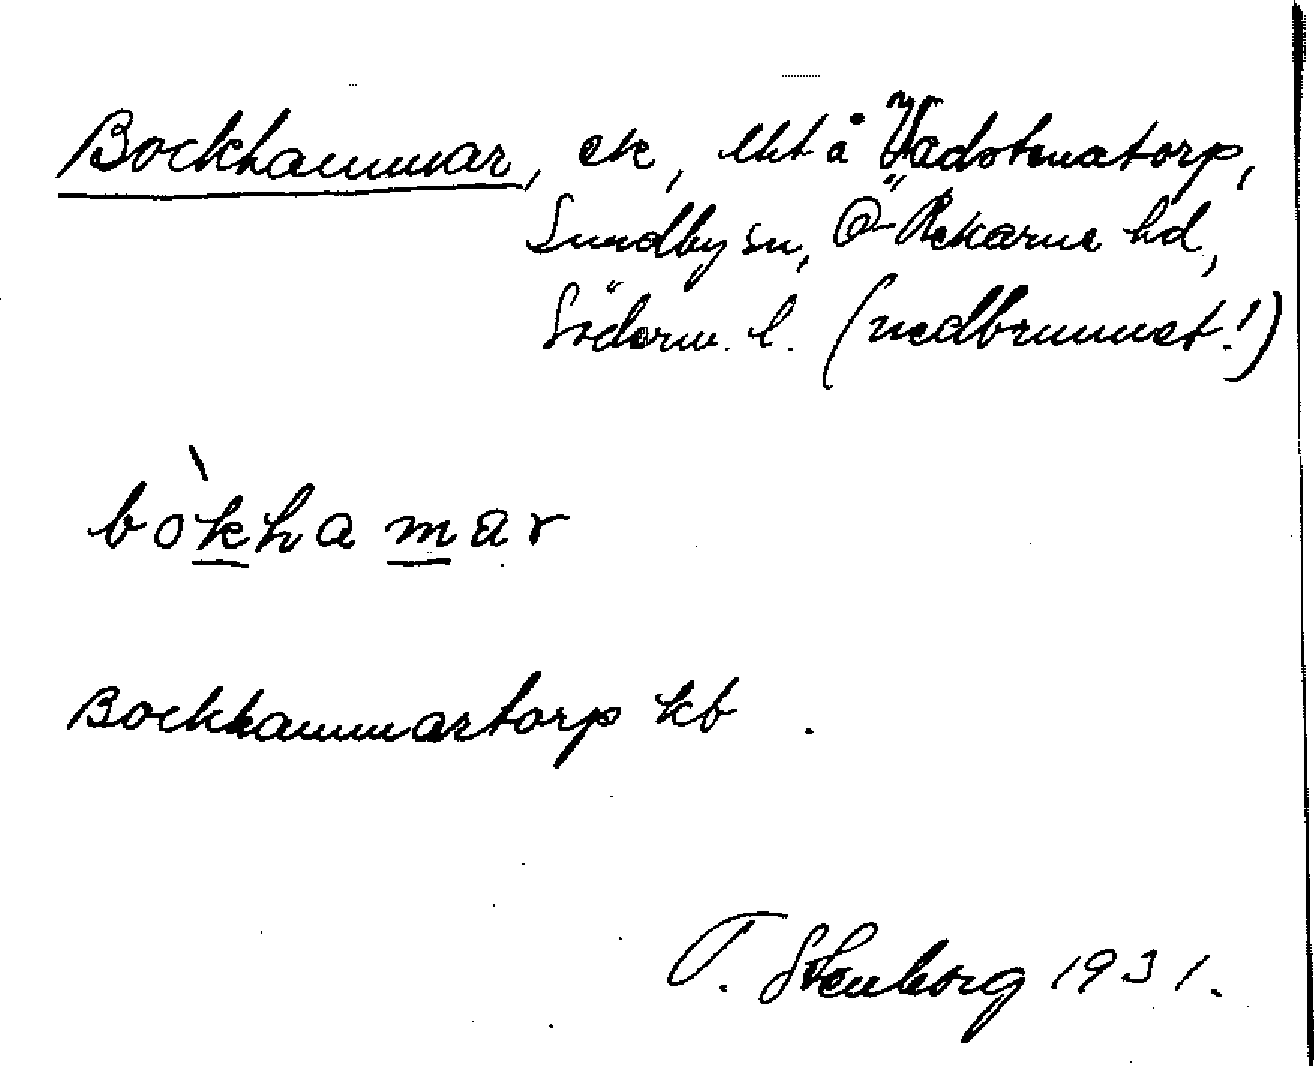 Bockhammar, ek, lht å Vadstenatorp,
Sundby sn, Ö Rekarne hd,
Söderm. l. (nedbrunnet!)
bòkhamar
Bockhammartorp kb
T. Stenborg 1931.